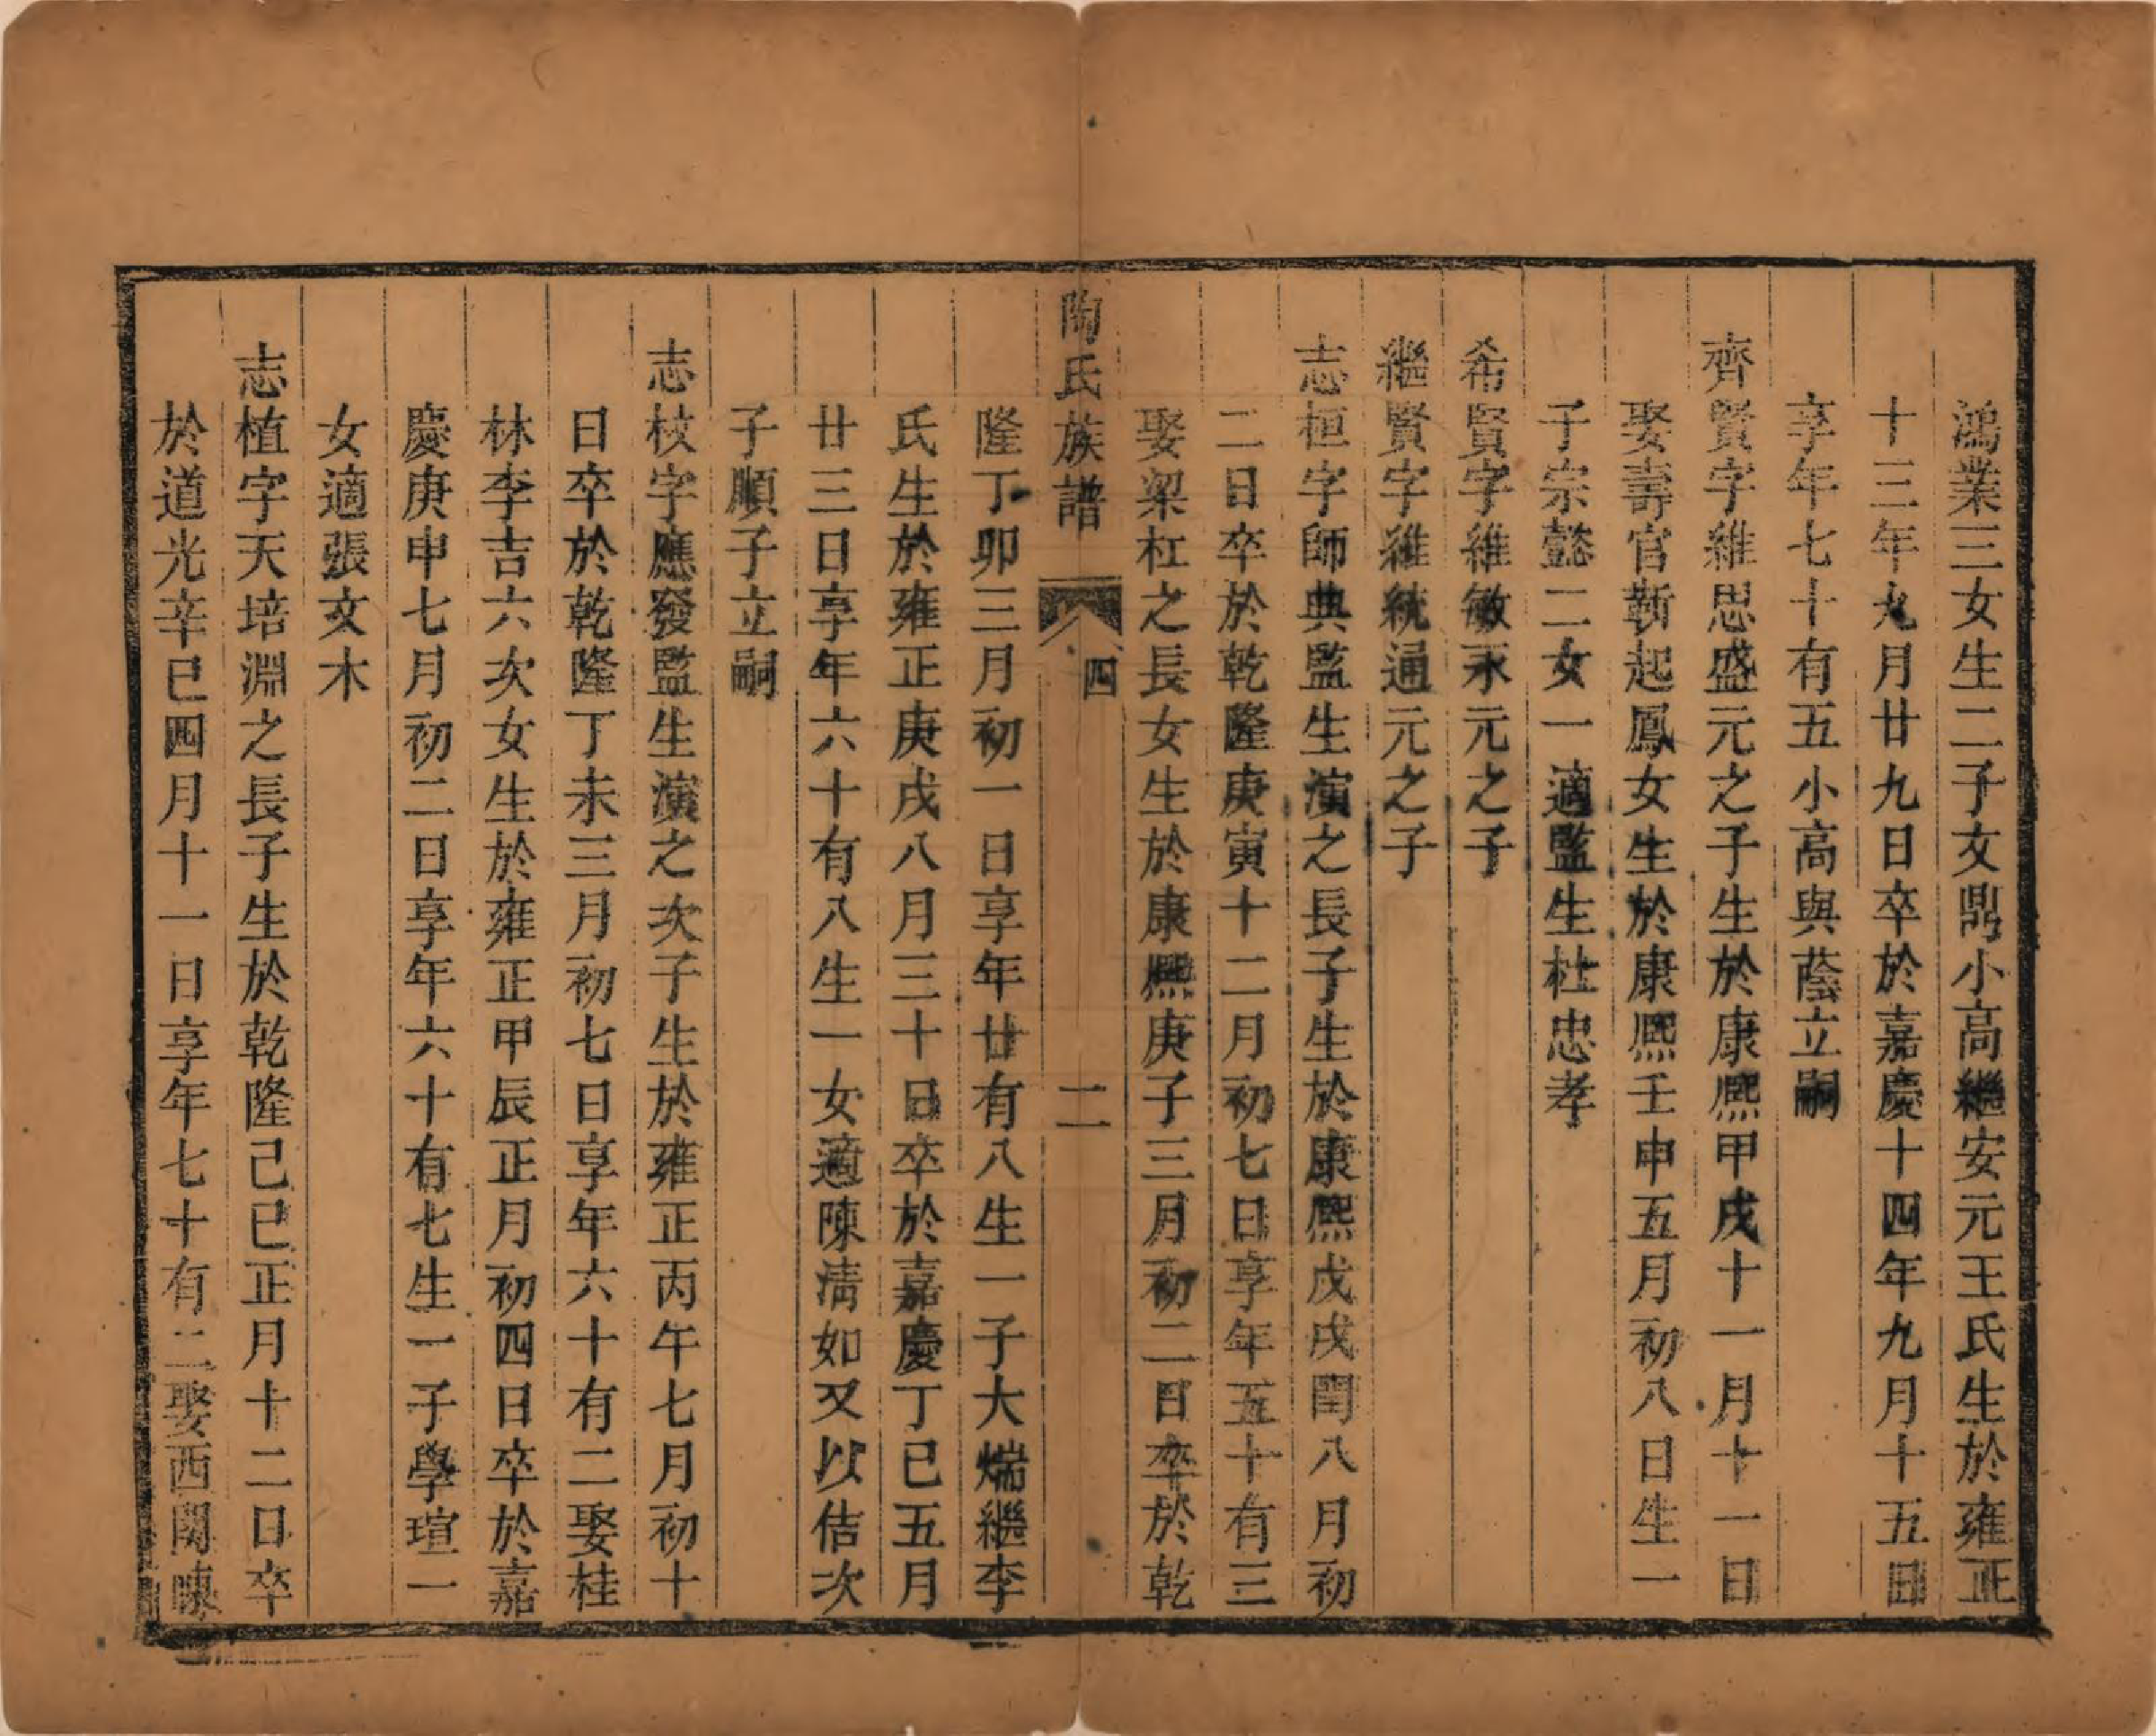 鴻業三女生二子文鼎小高繼安元王氏生於雍正
十三年九月廿九日卒於嘉慶十四年九月十五日
享年七十有五小高與蔭立嗣
齊賢字維思盛元之子生於康熙甲戌十一月十一日
娶壽官靳起鳳女生於康熙壬申五月初八日生一
子宗懿二女一適監生杜忠孝
希賢字維敏永元之子
繼賢字維統通元之子
志桓字師典監生演之長子生於康熙戊戌閏八月初
二日卒於乾隆庚寅十二月初七日享年五十有三
娶梁杠之長女生於康熙庚子三月初二日卒於乾
陶氏族譜 四 二
隆丁卯三月初一日享年廿有八生一子大煓繼李
氏生於雍正庚戌八月三十日卒於嘉慶丁巳五月
廿三日享年六十有八生一女適陳淸如又以佶次
子順子立嗣
志枝字應發監生演之次子生於雍正丙午七月初十
日卒於乾隆丁未三月初七日享年六十有二娶桂
林李吉六次女生於雍正甲辰正月初四日卒於嘉
慶庚申七月初二日享年六十有七生一子學瑄一
女適張文木
志植字天培淵之長子生於乾隆己巳正月十二日卒
於道光辛巳四月十一日享年七十有二娶西關陳